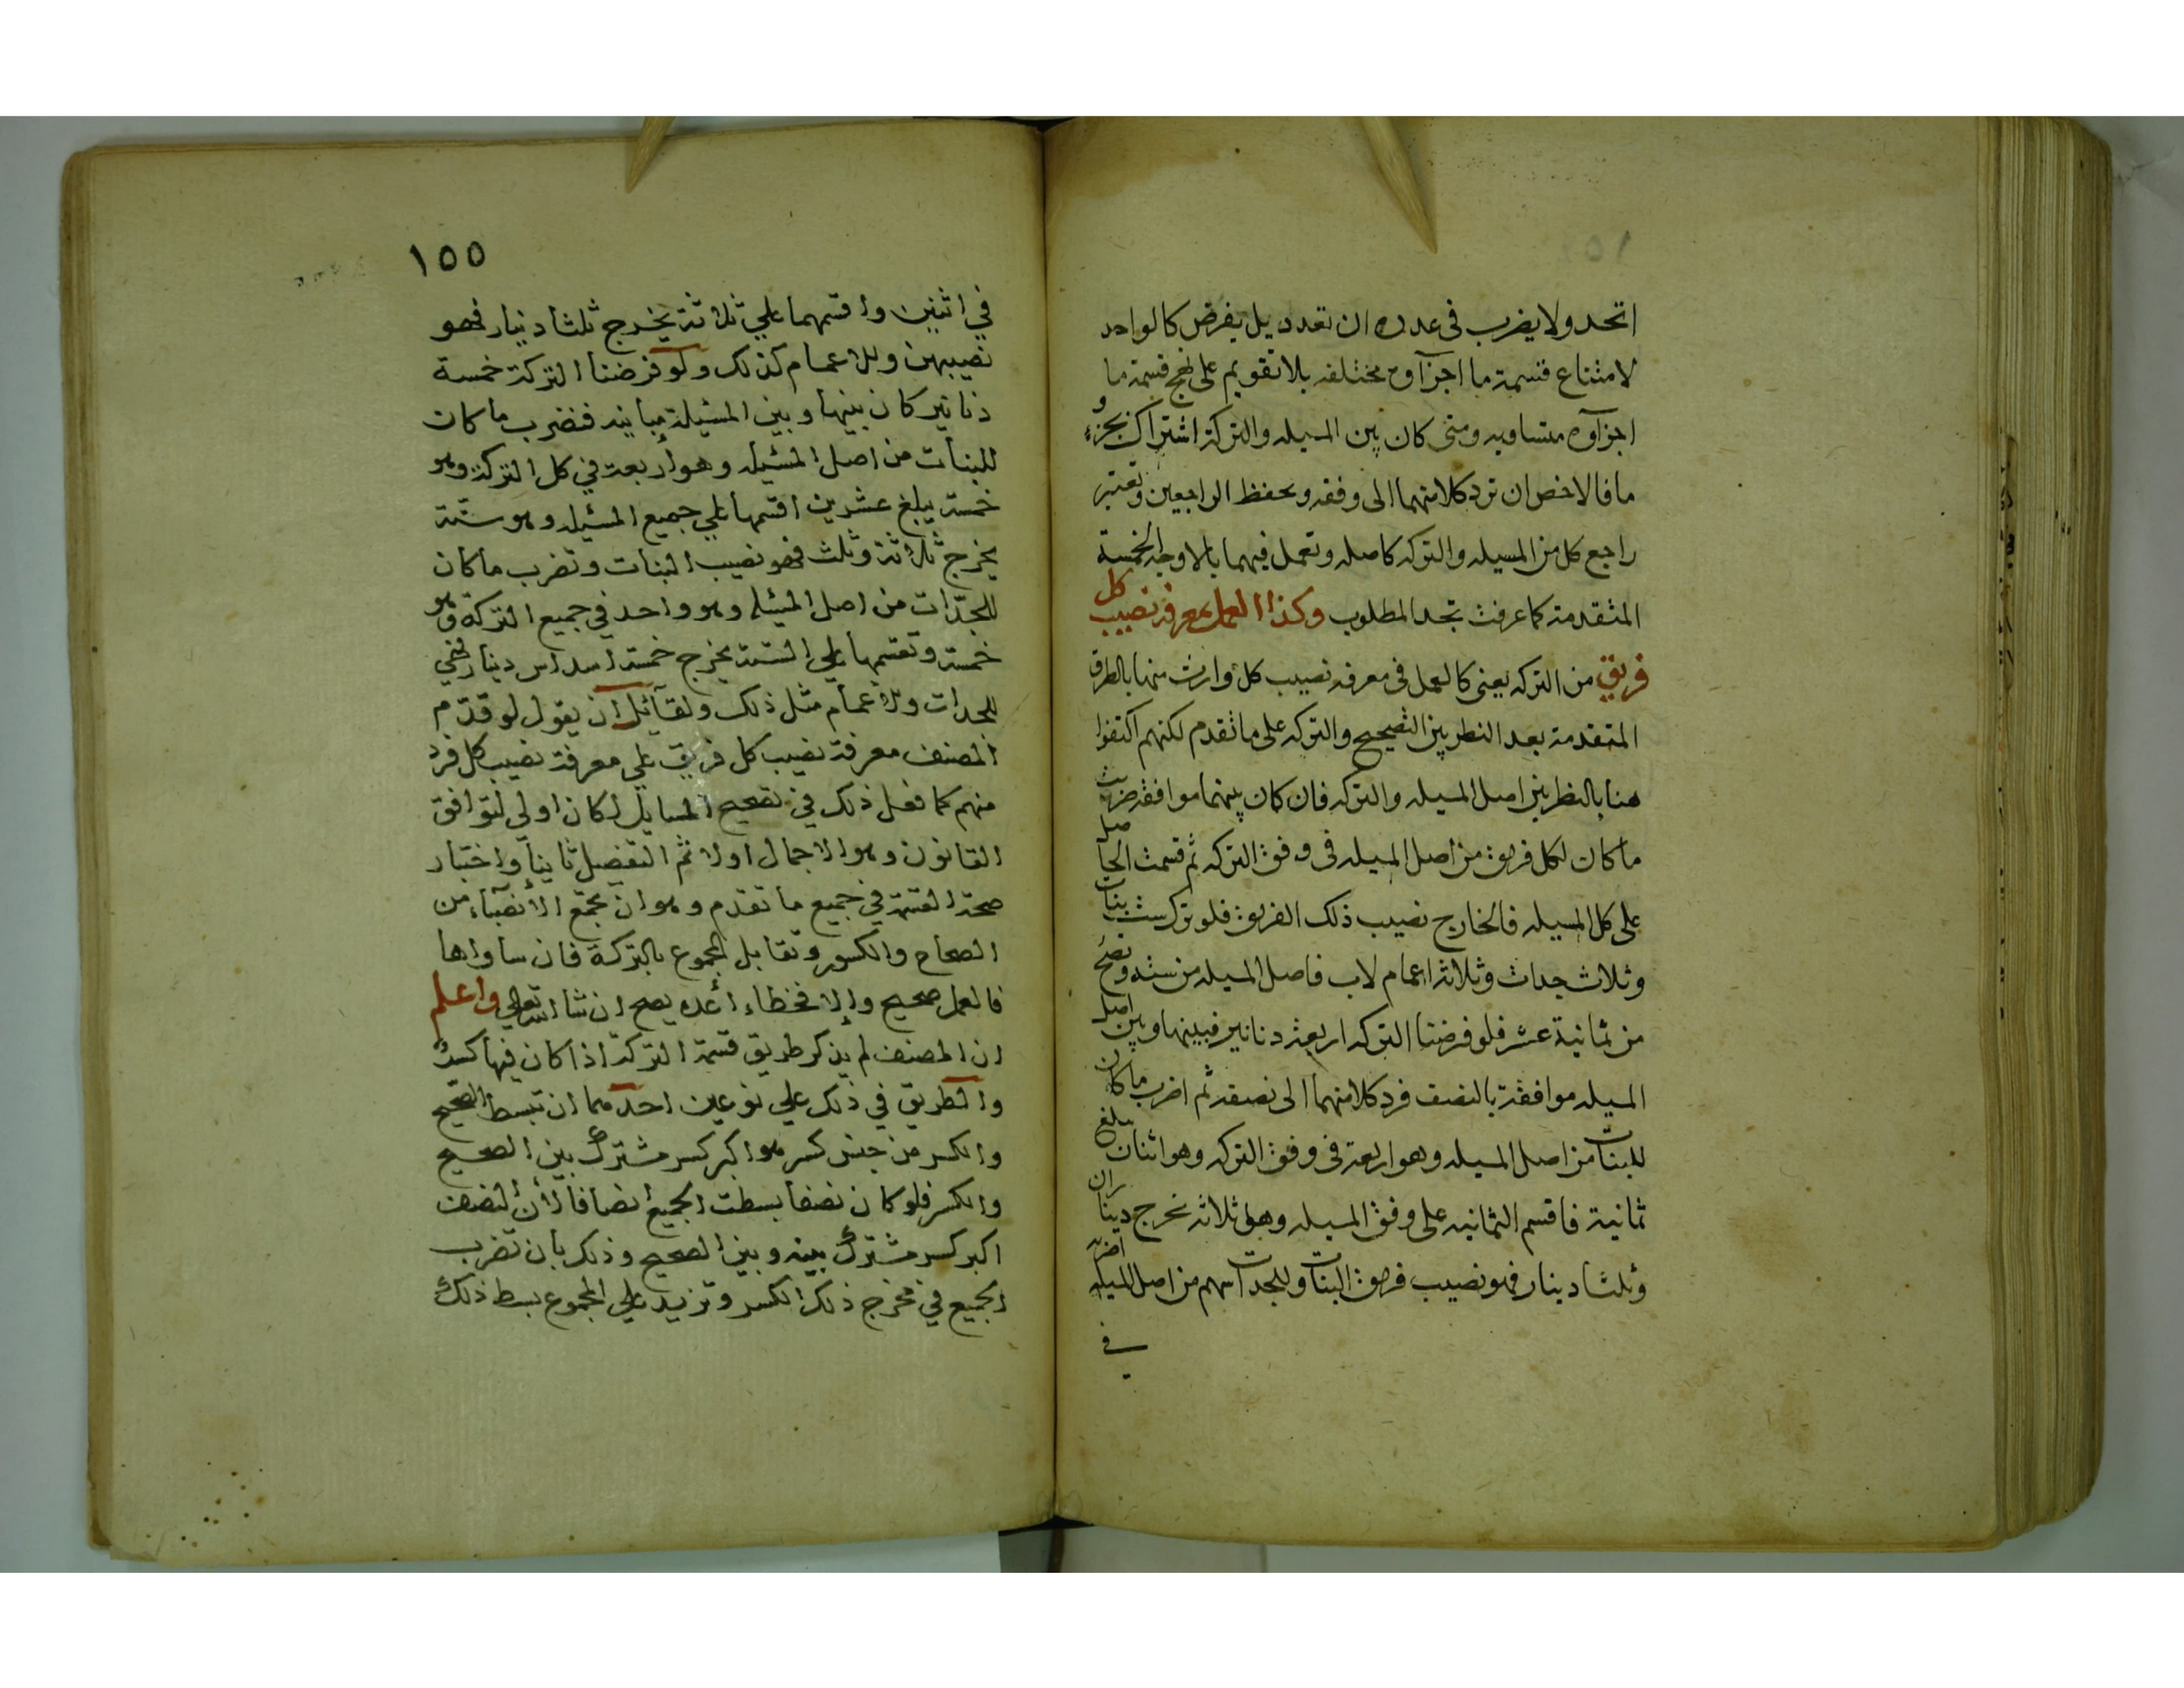 اتحد ولا يضرب في عدده ان تعدد بل يفرض كالواحد
لامتناع قسمة ما اجزآوه مختلفه بلا تقويم على نهج قسمة ما
اجزآوه متساويه ومتى كان بين المسيله والتركة اشتراك بجزءٍ
ما فالاخص ان ترد كلا منهما الى وفقه ويحفظ الراجعين وتعتبر
راجع كل من المسيله والتركه كاصله وتعمل فيهما بالاوجه الخمسة
المتقدمة كما عرفت تجد المطلوب وكذا العمل بمعرفة نصيب كل
فريق من التركه يعنى كالعمل فى معرفه نصيب كل وارث منها بالطرق
المتقدمة بعد النظر بين التصحيح والتركه على ما تقدم لكنهم اكتفوا
هنا بالنظر بين اصل المسيله والتركه فان كان بينهما موافقه ضربت
ما كان لكل فريق من اصل المسيله فى وفق التركه ثم قسمت الحاصل
على كل المسيله فالخارج نصيب ذلك الفريق فلو تركت ست بنات
وثلاث جدات وثلاثة اعمام لاب فاصل المسيله من سته وتصح
من ثمانية عشر فلو فرضنا التركه اربعة دنانير فبينها وبين اصل
المسيله موافقة بالنصف فرد كلا منهما الى نصفه ثم اضرب ما كان
للبنات من اصل المسيله وهو اربعة فى وفق التركه وهو اثنان يبلغ
ثمانية فاقسم الثمانيه على وفق المسيله وهو ثلاثه يخرج ديناران
وثلثا دينار فهو نصيب فريق البنات وللجدات سهم من اصل المسيله اضربه
في
١٥٥
في اثنين واقسمهما على ثلاثة يخرج ثلثا دينار فهو
نصيبهن وللاعمام كذلك ولو فرضنا التركة خمسة
دنانير كان بينها وبين المسئيلة مباينه فنضرب ما كان
للبنات من اصل المسئيله وهو اربعة في كل التركة وهو
خمسة يبلغ عشرين اقسمها على جميع المسئيله وهو ستة
يخرج ثلاثة وثلث فهو نصيب البنات وتضرب ما كان
للجدّات من اصل المسئيله وهو واحد في جميع التركة وهو
خمسة وتقسمها على الستة يخرج خمسة اسداس دينار فهي
للجدات وللاعمام مثل ذلك ولقآئل ان يقول لو قدّم
المصنف معرفة نصيب كل فريق على معرفة نصيب كل فرد
منهم كما فعل ذلك في تصحيح المسايل لكان اولى لتوافق
القانون وهو الاجمال اولا ثم التفصيل ثانياً واختبار
صحة القسمة في جميع ما تقدم وهو ان تجمع الأنصبآء من
الصحاح والكسور وتقابل المجموع بالتركة فان ساواها
فالعمل صحيح وإلا فخطاء أعده يصح ان شا الله تعالى واعلم
ان المصنف لم يذكر طريق قسمة التركة اذا كان فيها كسرٌ
والطريق في ذلك علي نوعين احدهما ان تبسط الصحيح
والكسر من جنس كسر هو اكبر كسر مشترك بين الصحيح
والكسر فلو كان نصفا بسطت الجميع انصافا لأن النصف
اكبر كسر مشترك بينه وبين الصحيح وذلك بان تضرب
الجميع في مخرج ذلك الكسر وتزيد على المجموع بسط ذلك